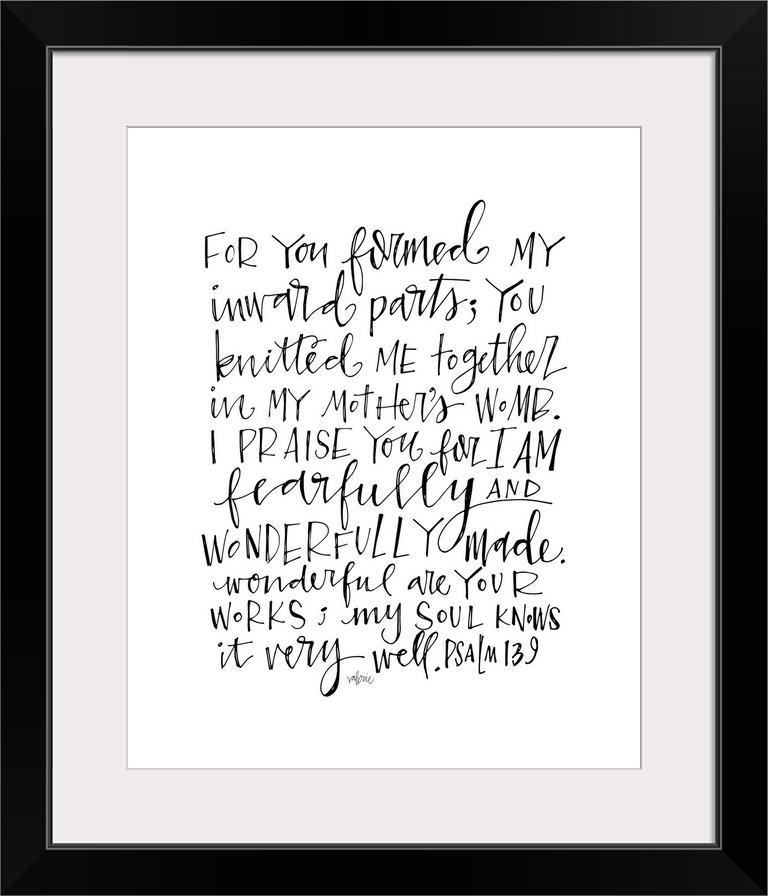 FOR YOU formed MY
inward parts; YOU
knitted ME together
in MY MOTHER'S WOMB.
I PRAISE YOU for I AM
fearfully AND
WONDERFULLY made.
wonderful are YOUR
WORKS; my SOUL KNOWS
it very well. PSALM 139
valerie